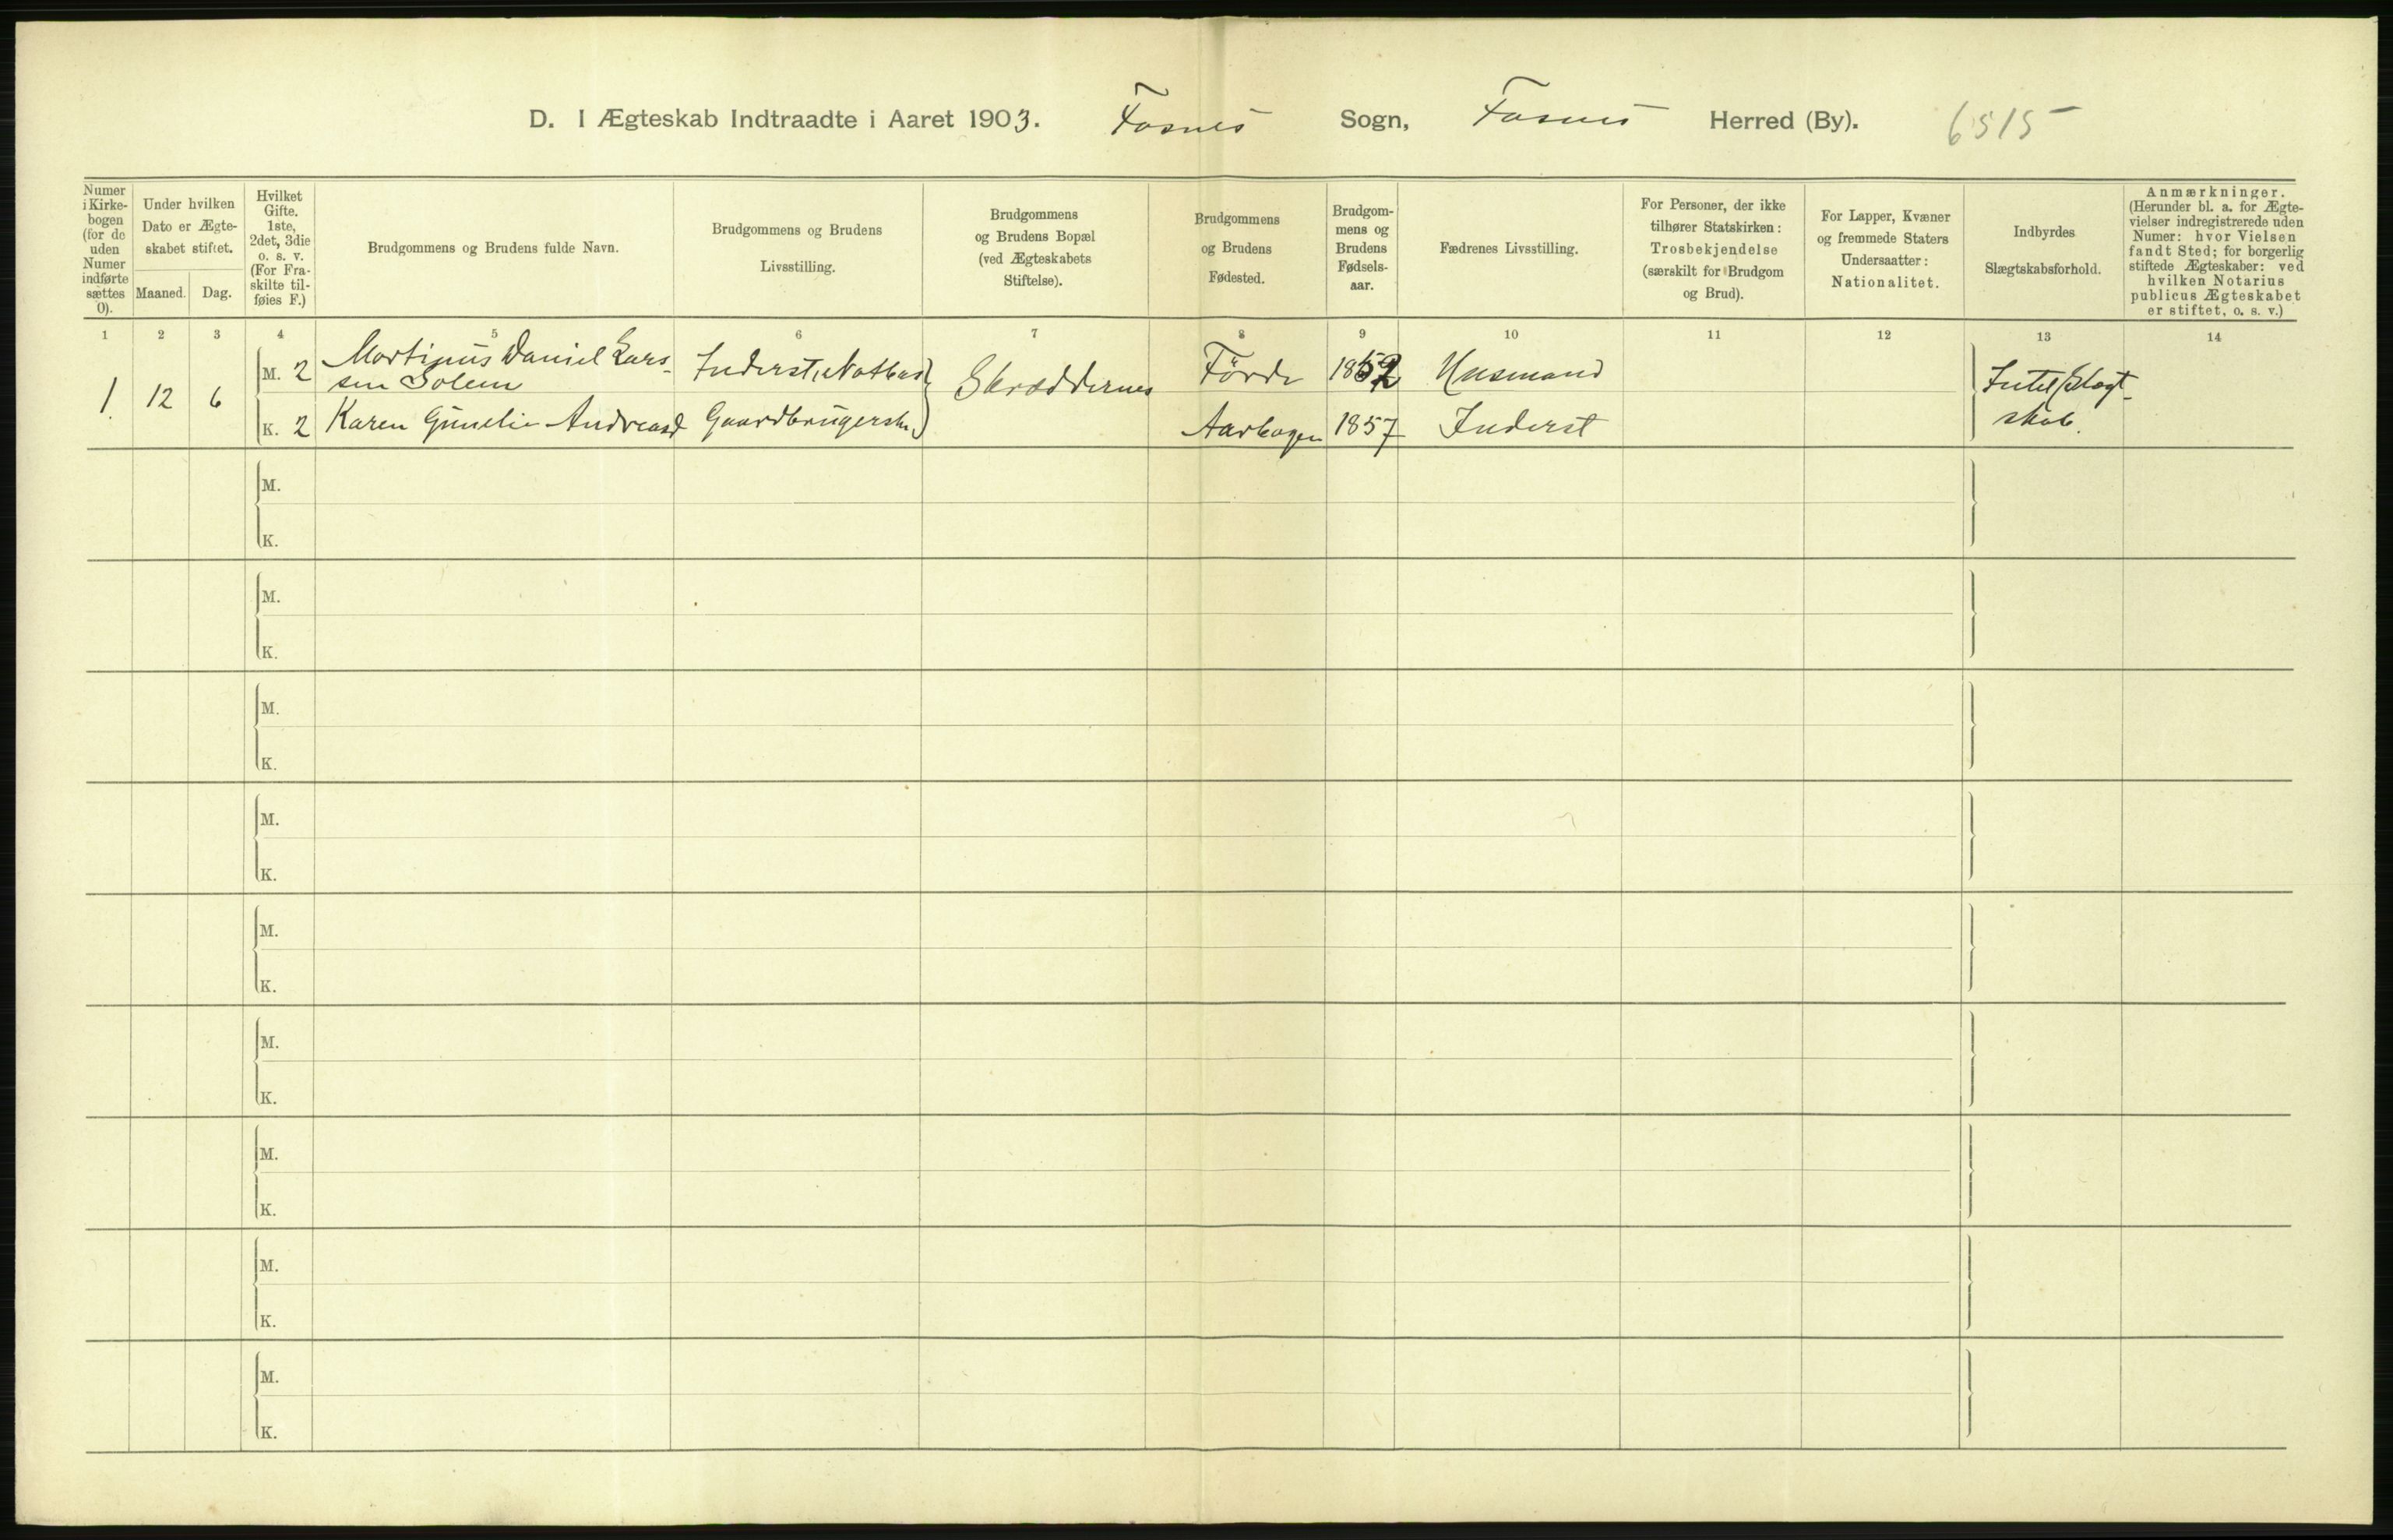 D. I Ægteskab Indtraadte i Aaret 1903. Fosnes Sogn, Fosnes Herred (By). 6515
Numer i Kirkebogen (for de uden Numer indførte sættes 0).
Under hvilken Dato er Ægteskabet stiftet.
Maaned. Dag.
Hvilket Gifte. 1ste, 2det, 3die o. s. v. (For Fraskilte tilføies F.)
Brudgommens og Brudens fulde Navn.
Brudgommens og Brudens Livsstilling.
Brudgommens og Brudens Bopæl (ved Ægteskabets Stiftelse).
Brudgommens og Brudens Fødested.
Brudgommens og Brudens Fødselsaar.
Fædrenes Livsstilling.
For Personer, der ikke tilhører Statskirken: Trosbekjendelse (særskilt for Brudgom og Brud).
For Lapper, Kvæner og fremmede Staters Undersaatter: Nationalitet.
Indbyrdes Slægtskabsforhold.
Anmærkninger. (Herunder bl. a. for Ægtevielser indregistrerede uden Numer: hvor Vielsen fandt Sted; for borgerlig stiftede Ægteskaber: ved hvilken Notarius publicus Ægteskabet er stiftet, o. s. v.)
1 2 3 4 5 6 7 8 9 10 11 12 13 14
1. 12 6 M. 2 Martinus Daniel Larssen Solem Inderst, Skræddernes Förde 1852 Husmand Intet Slægtskab.
K. 2 Karen Gunelie Andreasd Gaardbrugerske Aarbogen 1857 Inderst
M.
K.
M.
K.
M.
K.
M.
K.
M.
K.
M.
K.
M.
K.
M.
K.
M.
K.